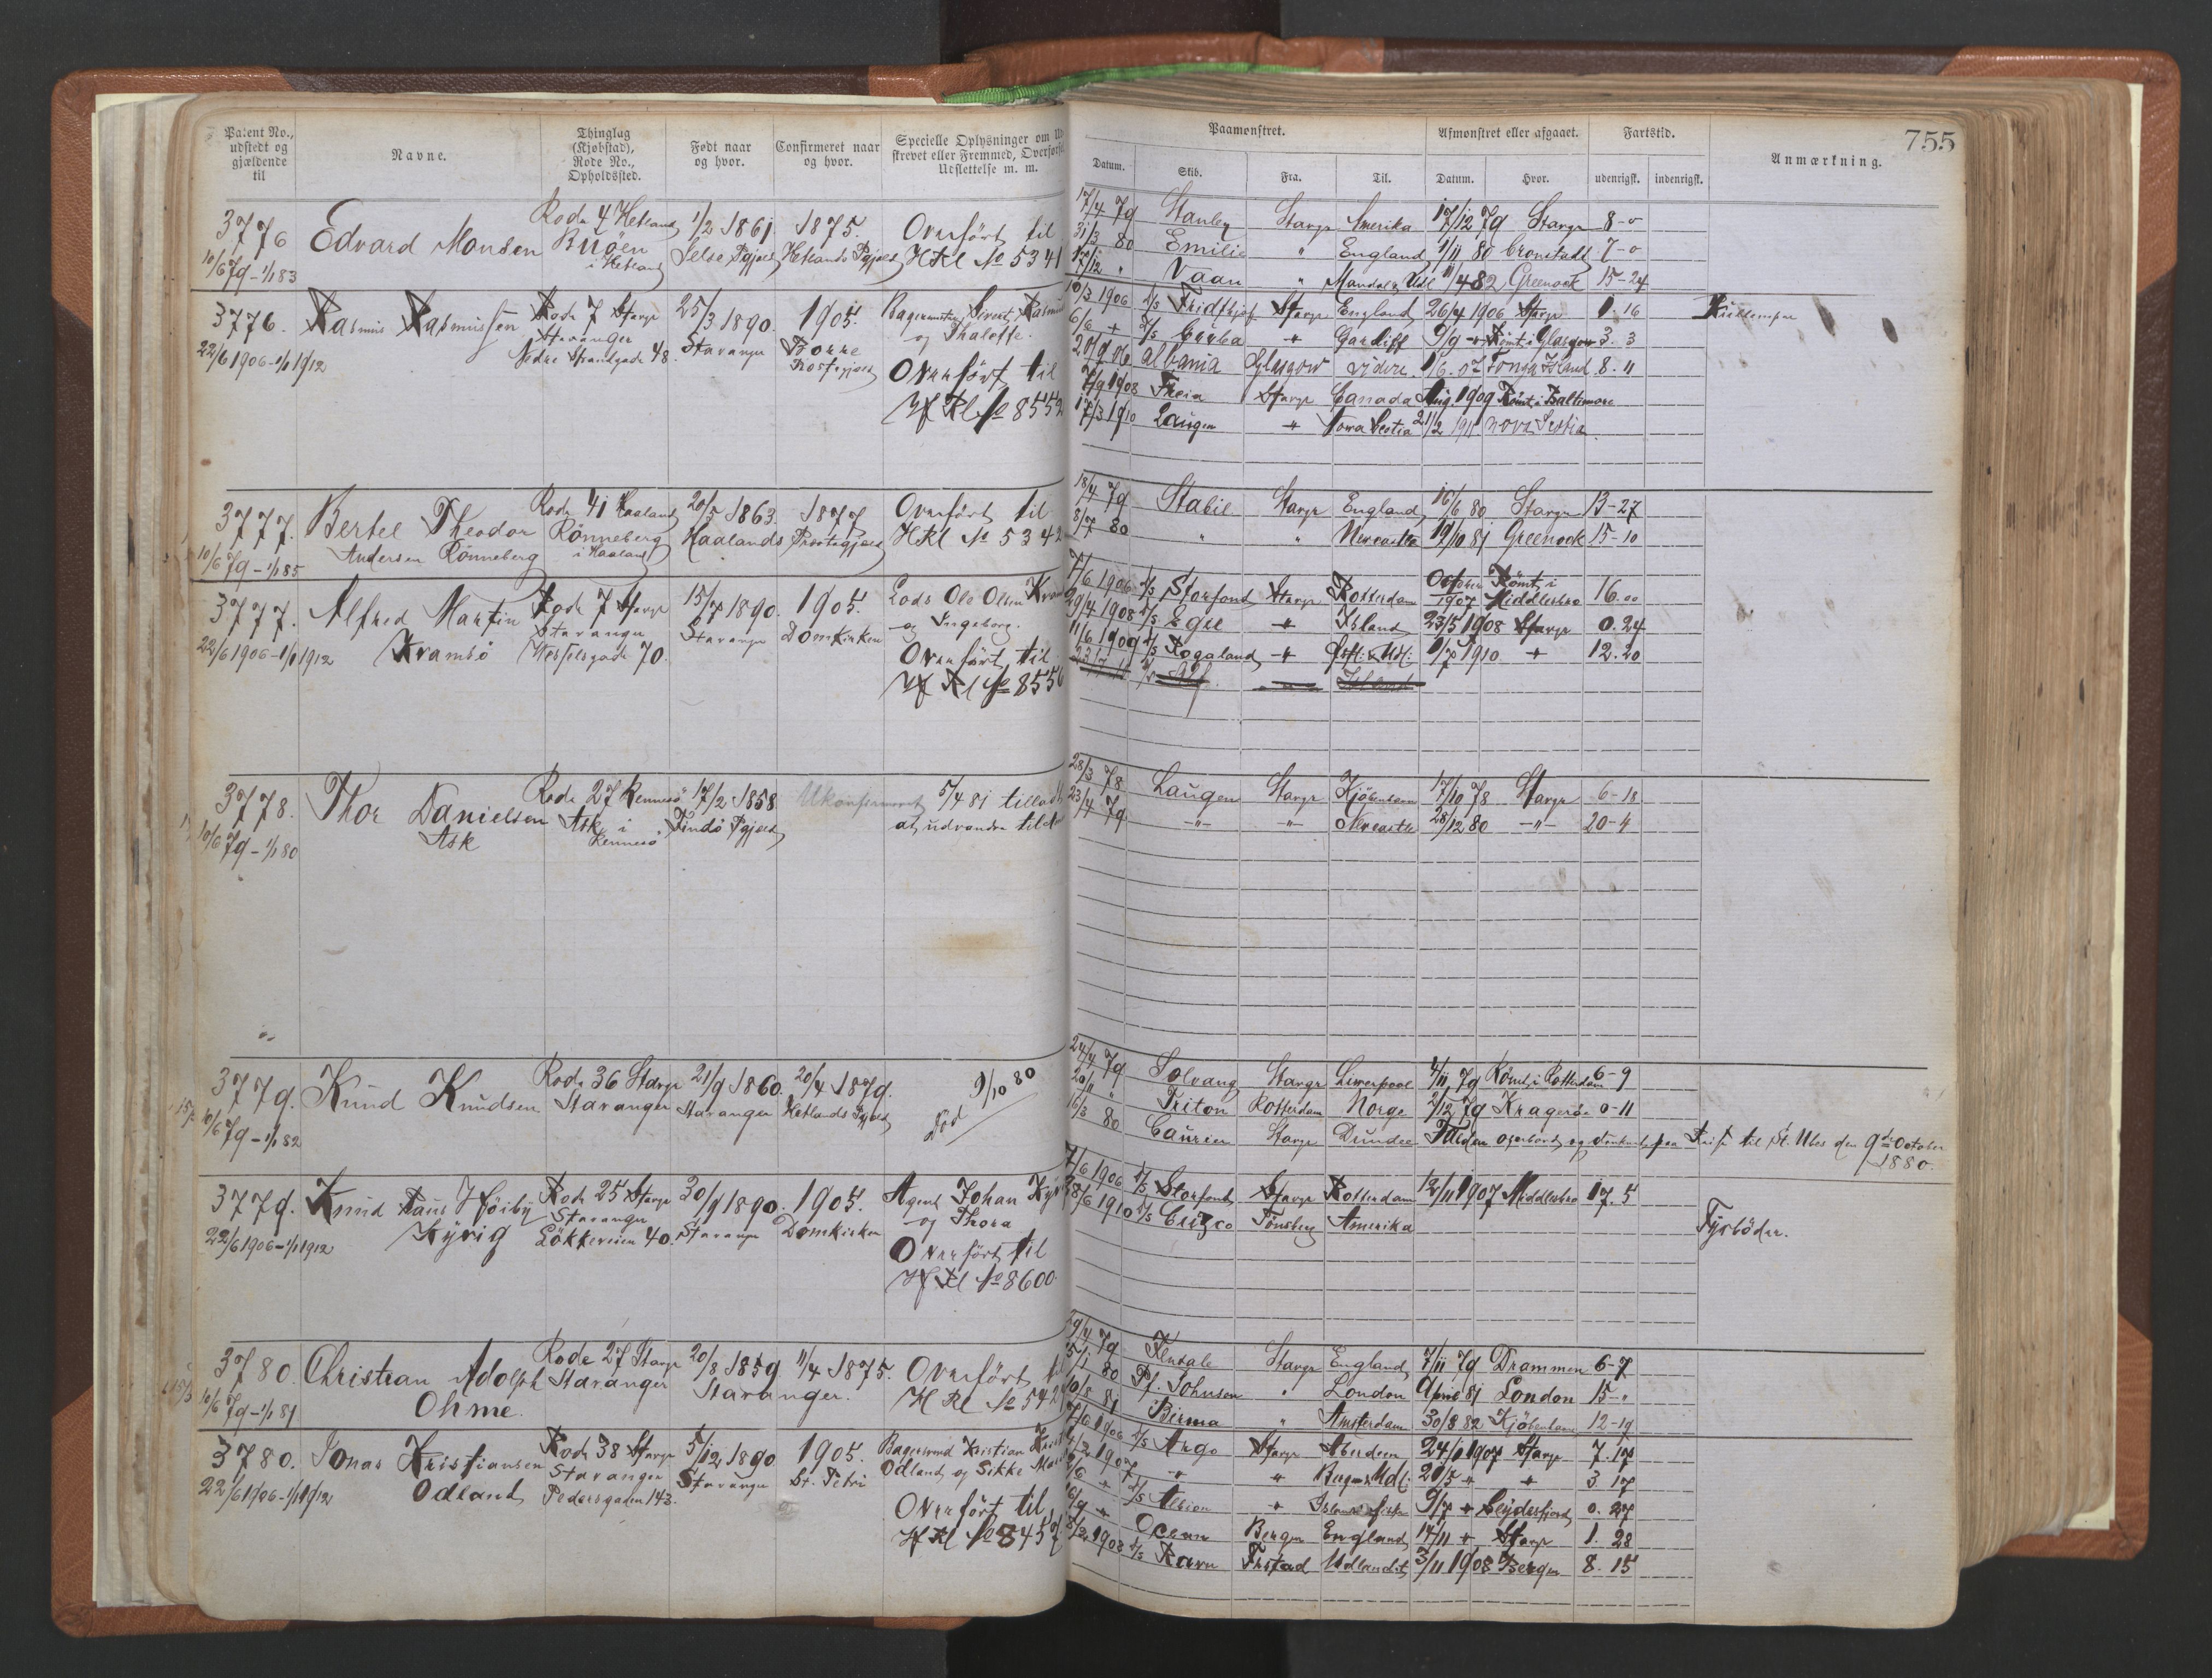 755
Patent No., udstedt og gjældende til
Navne.
Thinglag (Kjøbstad), Rode No., Opholdssted.
Født naar og hvor.
Confirmeret naar og hvor.
Specielle Oplysninger om
skrevet eller Fremmed,
Udslettelse m. m.
Paamønstret.
Afmønstret eller afgaaet.
Fartstid.
Anmærkning.
Datum. Skib. Fra. Til. Datum. Hvor. udenrigsk. indenrigsk.
3776 Edvard Monsen Rode 4 Hetland 1/2 1861. 1875. Overført til
10/6 79 - 1/1 83 Buøen i Hetland Pgjæld Hetlands Pgjæld HRl № 5341
17/4 79 Stanley Stavgr Amerika 17/12 79 Stavgr 8-0
31/3 80 Emilie " England 1/11 80 Cronstadt 7-0
17/12 " Vaan " Mandal & Udl 11/4 82 Greenock 15-24
3776. Rasmus Rasmussen Rode 7 Stavgr 25/3 1890. 1905. Sivert Rasmus
22/6 1906 - 1/1 1912 Stavanger Stavanger Borre og Thalette.
Nedre Strandgade 48. Prostegjæld Overført til
HRl № 8552
10/3 1906 D/S Fridthjof Stavgr England 26/4 1906 Stavgr 1. 16
6/6 " D/S Cuba " Cardiff 9/9 " Rømt i Glasgow 3. 3
20/9 06 Albania Glasgow videre. 1/6. 07 8. 11
7/9 1908 Theia Stavgr Canada Aug 1909 Rømt i Baltimore
17/3 1910 Laugen " Nova Scotia 21/2 1911 Nova Scotia
3777. Bertel Theodor Rode 41 Haaland 20/5 1863. 1877 Overført til
10/6 79 - 1/1 85 Andersen Rønneberg Rønneberg i Haaland Haalands Prostegjæld HRl № 5342
18/4 79 Stabil Stavgr England 16/6 80 Stavgr 13-27
8/7 80 " " Newcastle 19/10 81 Greenock 15-10
3777. Alfred Martin Rode 7 Stavgr 15/7 1890. 1905. Lods Ole Olsen
22/6 1906 - 1/1 1912 Krambø Stavanger Stavanger Domkirken og Ingeborg.
Wesselsgade 70. Overført til
HRl № 8556
7/6 1906 D/S Storfond Stavgr Rotterdam October 1907 Rømt i Middlesbro 16.00
29/4 1908 D/S Egil " Island 23/5 1908 Stavgr 0.24
11/6 1909 D/S Rogaland " & Udl: 1/7 1910 " 12.20
3778. Thor Danielsen Rode 27 Rennesø 17/2 1858 Ukonfirmeret 5/4 81 tilladt
10/6 79 - 1/1 80 Ask Ask i Rennesø Findø Pgjæld at udvandre til
28/3 78 Laugen Stavgr Kjøbenhavn 17/10 78 Stavgr 6-18
23/4 79 -"- -"- Newcastle 28/12 80 -"- 20-4
3779. Knud Knudsen Rode 36 Stavgr 21/9 1860. 20/4 1879. Død 9/10 80
10/6 79 - 1/1 82 Stavanger Stavanger Hetlands Pgjæld
24/4 79 Solvang Stavgr Liverpool 4/11 79 Rømt i Rotterdam 6-9
20/11 " Triton Rotterdam Norge 2/12 79 Kragerø 0-11
16/3 80 Courier Stavgr Dundee Falden overbord og druknet paa Reise til St. Ubes den 9de October 1880.
3779. Knud Høiby Rode 25 Stavgr 30/9 1890. 1905. Agent Johan
22/6 1906 - 1/1 1912 Kyvig Stavanger Stavanger Domkirken og Thora
Løkkeveien 40. Overført til
HRl № 8600.
7/6 1906 D/S Storfond Stavgr Rotterdam 12/11 1907 Middlesbro 17. 5
28/6 1910 D/S Tønsberg Amerika
Fyrbøder.
3780. Christian Adolph Rode 27 Stavgr 20/8 1859 11/4 1875. Overført til
10/6 79 - 1/1 81 Ohme. Stavanger Stavanger. HRl №
29/4 79 Stavgr England 7/11 79 Drammen 6-7
80 Johnsen " London April 81 London 15-"
10/8 81 Birma " Amsterdam 30/8 82 Kjøbenhavn 12-19
3780. Jonas Kristiansen Rode 38 Stavgr 5/12 1890 1905. Kristian
22/6 1906 - 1/1 1912 Odland Stavanger Stavanger St. Petri Odland og Sikke
Pedersgaden 143. Overført til
HRl № 8457
1906 D/S Argo Stavgr Aberdeen 24/1 1907 Stavgr 7. 17
1907 " " Bergen & Udl. 20/5 " " 3 17
D/S Albion " Islands 9/7 " Seydesfjord 0. 27
6/9 " Ocean Bergen England 14/11 " Stavgr 1. 28
8/2 1908 D/S Ravn Frstad Udlandet 3/11 1908 Bergen 8. 15